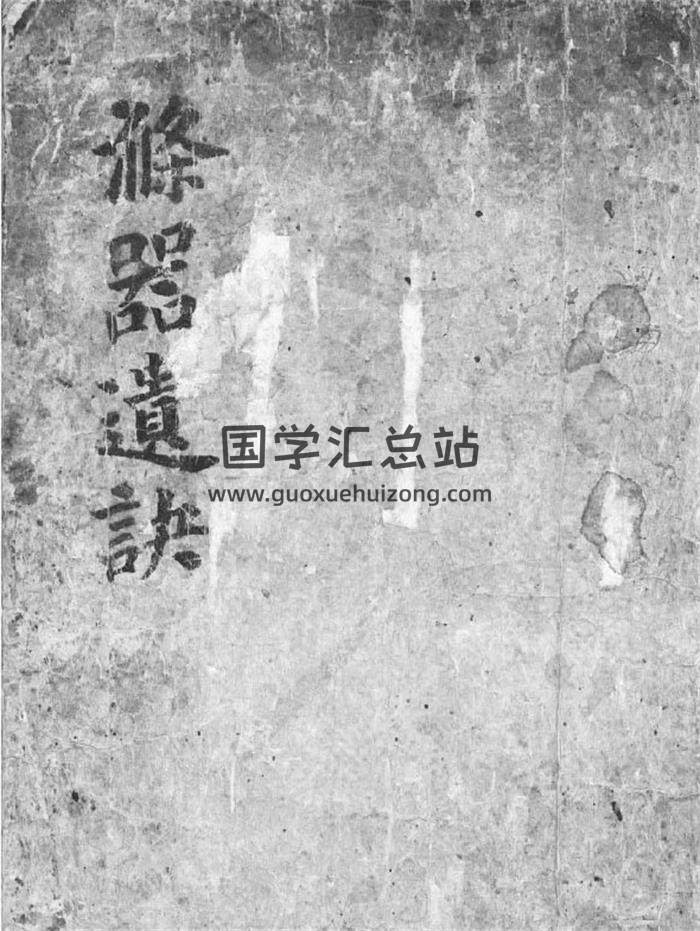 滌器遺訣
国学汇总站
www.guoxuehuizong.com